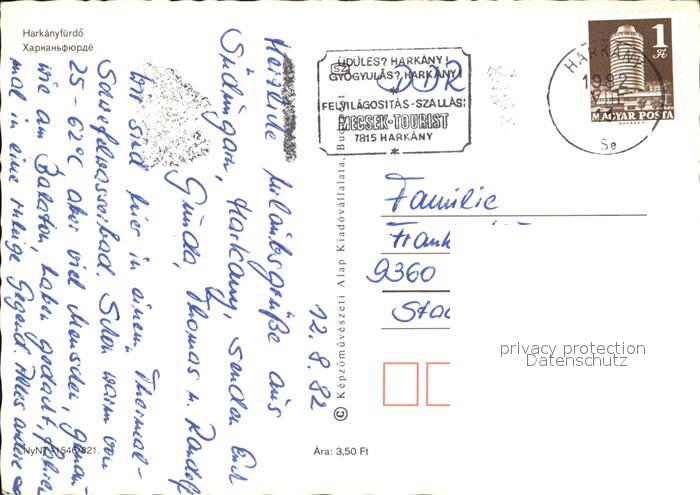 Harkányfürdő
Харканьфюрдё
ÜDÜLÉS? HARKÁNY!
GYÓGYULÁS? HARKÁNY!
FELVILÁGOSITÁS-SZÁLLÁS:
MECSEK-TOURIST
7815 HARKÁNY
DDR
HARKÁNY
1982
1 Ft
MAGYAR POSTA
Familie
Frank
9360
12.8.82
Herzliche Urlaubsgrüße aus
Südungarn, Harkany, senden Euch
Gunda, Thomas u. Randolf
Wir sind hier in einem Thermal-
Schwefelwasserbad Schön warm von
25 - 62°C aber viel Menschen, genau-
wie am Balaton, haben gedacht, fahre
mal in eine ruhige Gegend. Alles andere
© Képzőművészeti Alap Kiadóvállalata, Budapest
Ára: 3,50 Ft
privacy protection
Datenschutz